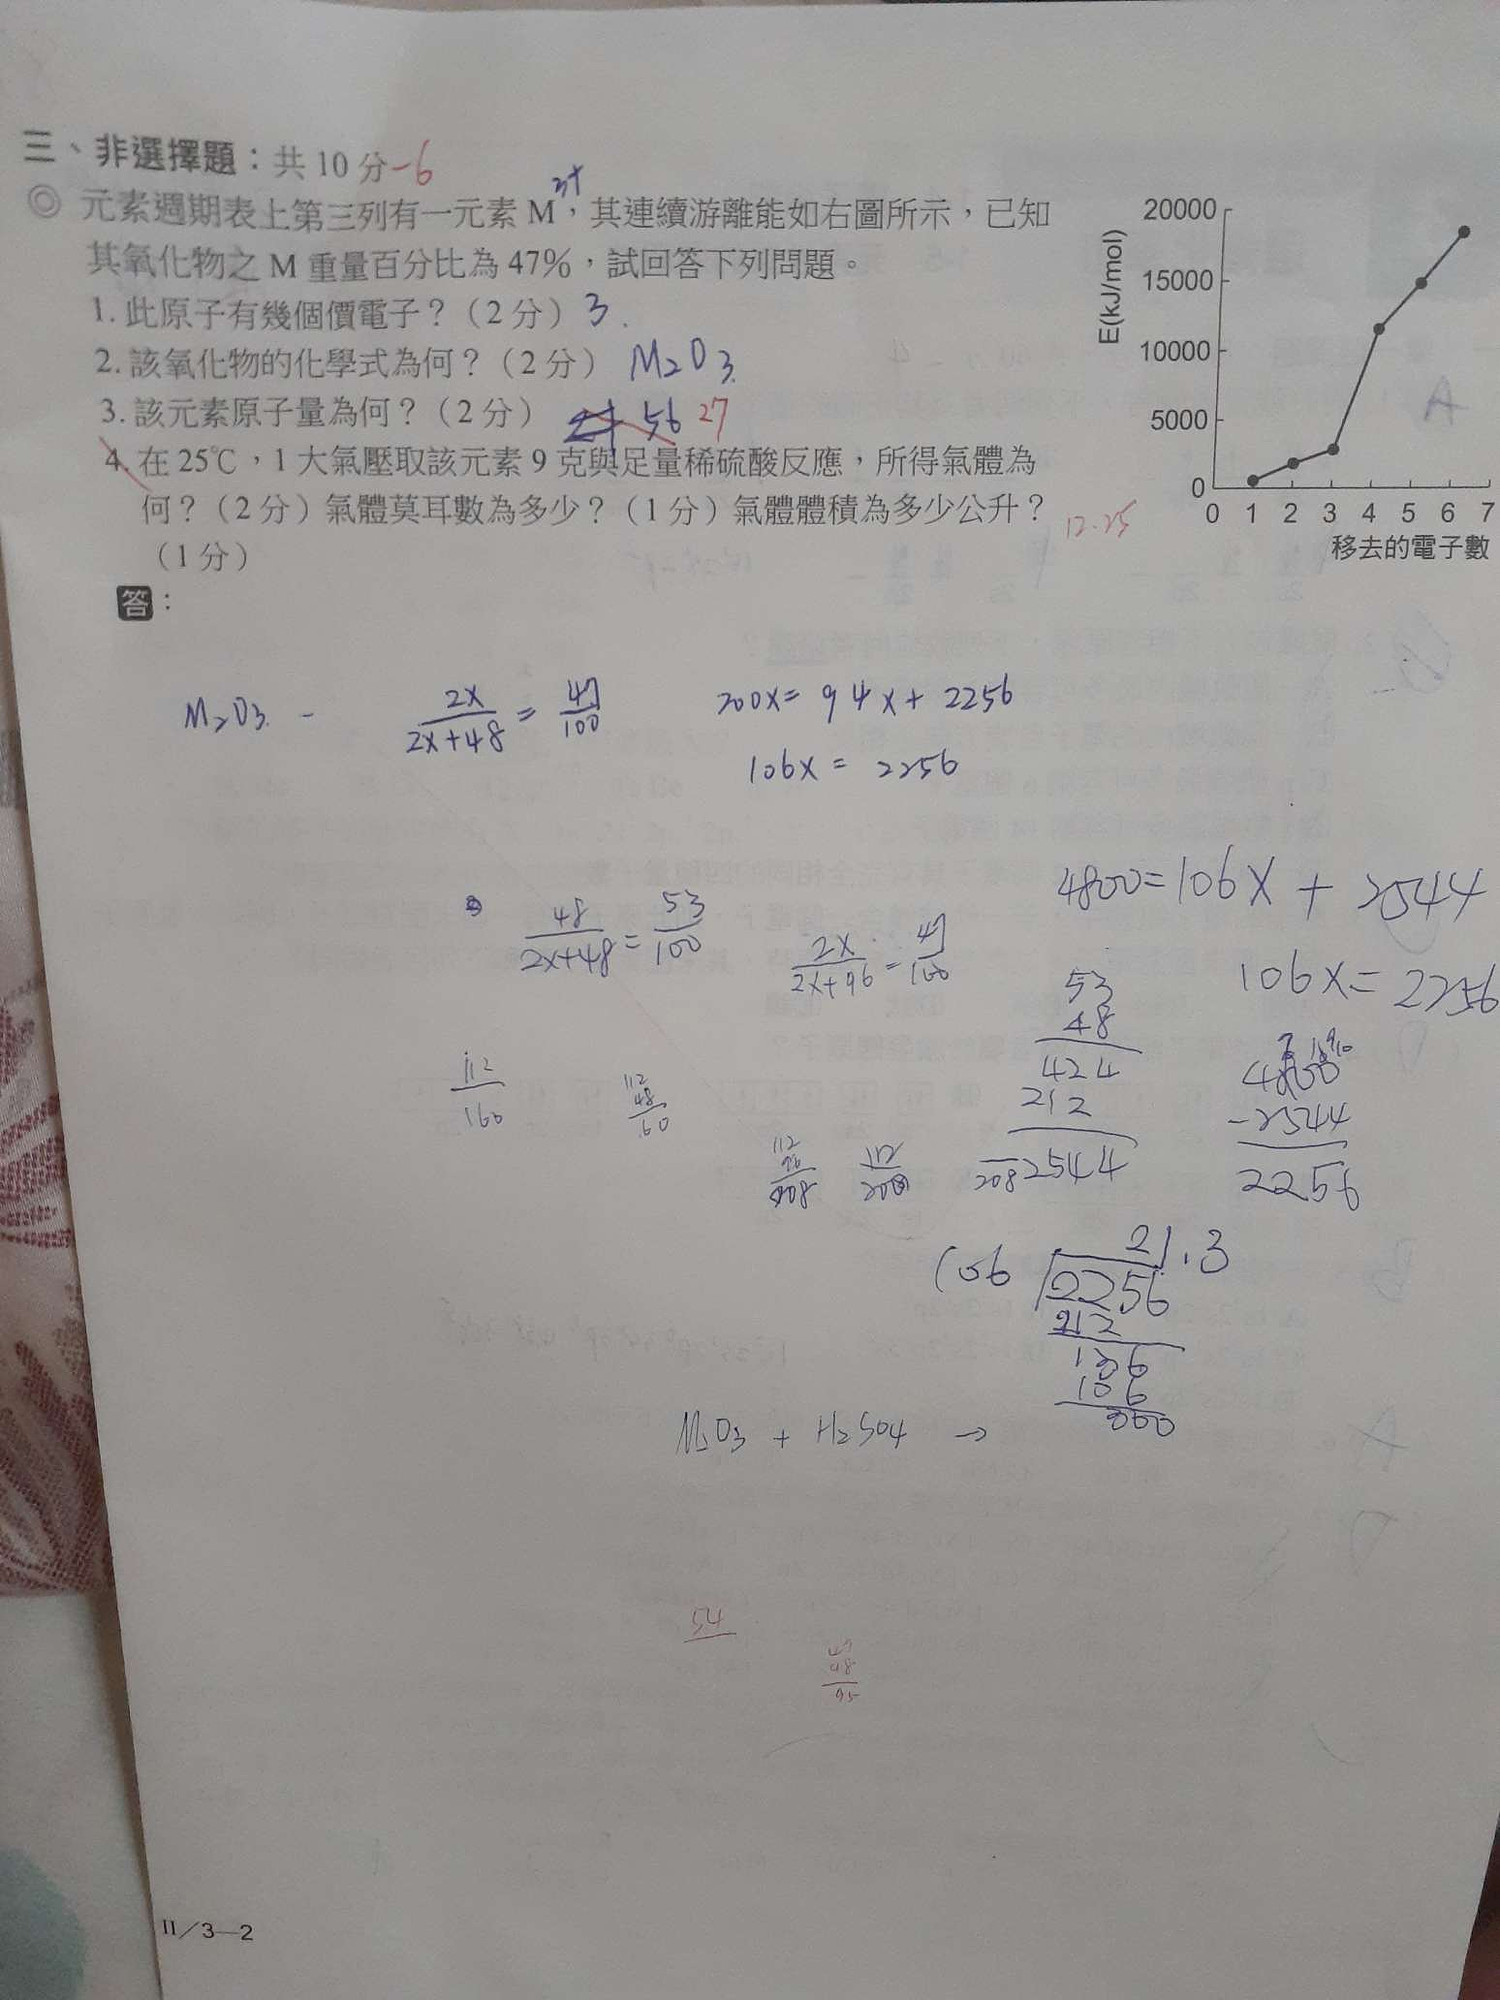 三、非選擇題：共10分 -6
◎ 元素週期表上第三列有一元素M，其連續游離能如右圖所示，已知 3+
其氧化物之M重量百分比為47%，試回答下列問題。
1. 此原子有幾個價電子？（2分） 3.
2. 該氧化物的化學式為何？（2分） M₂O₃.
3. 該元素原子量為何？（2分） 56 27
4. 在25℃，1大氣壓取該元素9克與足量稀硫酸反應，所得氣體為
何？（2分）氣體莫耳數為多少？（1分）氣體體積為多少公升？ 12.25
（1分）
答：
E(kJ/mol)
20000
15000
10000
5000
0
0 1 2 3 4 5 6 7
移去的電子數
M₂O₃. - 2x/(2x+48) = 47/100 200x = 94x + 2256
106x = 2256
4800 = 106x + 2544
48/(2x+48) = 53/100 2x/(2x+96) = 47/100
106x = 2256
53
48
424
212
2544
4800
-2544
2256
112
160
112
48
60
112
96
208
112
208
208
21.3
106 2256
212
136
106
300
M₂O₃ + H₂SO₄ →
54
47
48
95
II／3—2